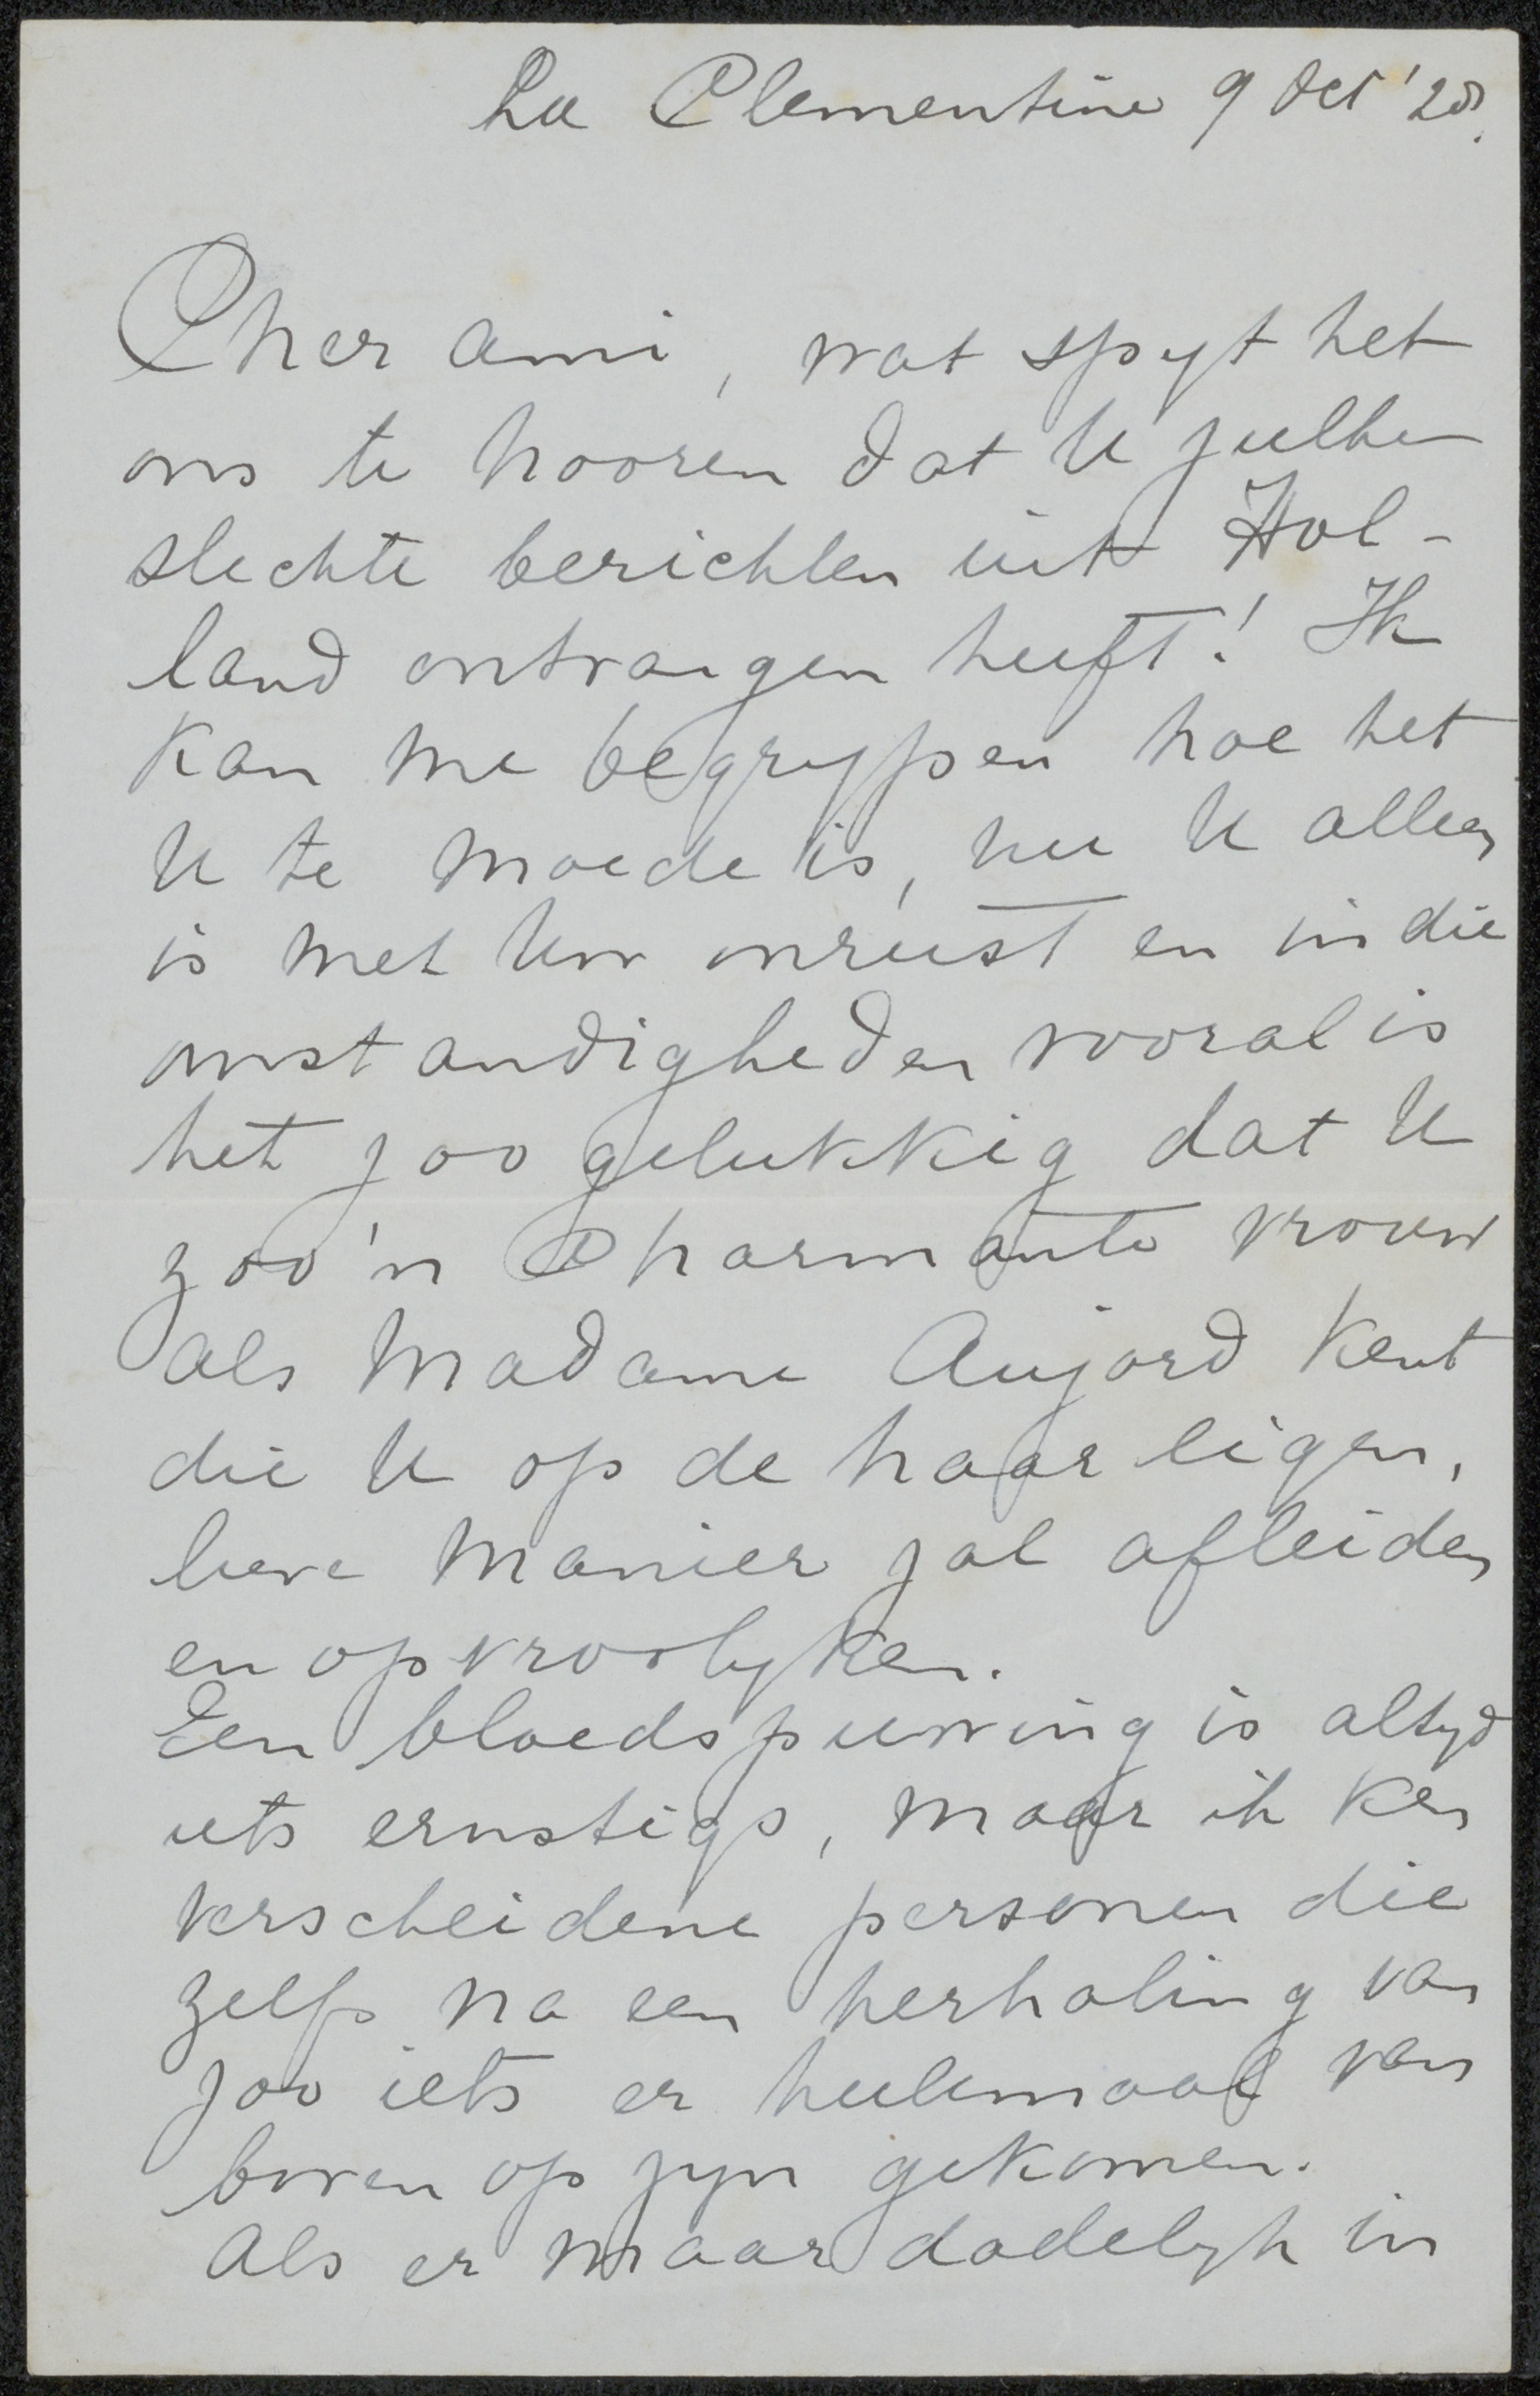 La Clementine 9 Oct '20.
Cher ami, wat spyt het
ons te hooren dat U zulke
slechte berichten uit Hol-
land ontvangen heeft! Ik
kan me begrypen hoe het
U te moede is, nu U alleen
is met Uw onrust en in die
omstandigheden vooral is
het zoo gelukkig dat U
zoo'n Charmante vrouw
als Madame Aujard kent
die U op de haar eigen,
lieve manier zal afleiden
en opvroolyken.
Een bloedspuwing is altyd
iets ernstigs, maar ik ken
verscheidene personen die
zelfs na een herhaling van
zoo iets er heelemaal van
boven op zyn gekomen.
Als er maar dadelyk in